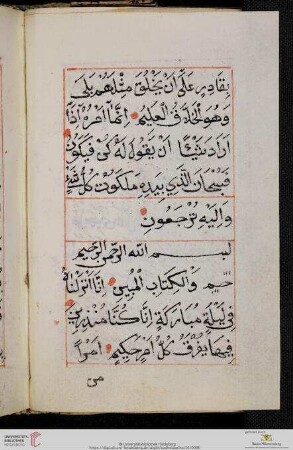 بِقَادِرٍ عَلَى أَنْ يَخْلُقَ مِثْلَهُمْ بَلَى
وَهُوَ الْخَلَّاقُ الْعَلِيمُ إِنَّمَا أَمْرُهُ إِذَا
أَرَادَ شَيْئًا أَنْ يَقُولَ لَهُ كُنْ فَيَكُونُ
فَسُبْحَانَ الَّذِي بِيَدِهِ مَلَكُوتُ كُلِّ شَيْءٍ
وَإِلَيْهِ تُرْجَعُونَ
بسم الله الرحمن الرحيم
حم وَالْكِتَابِ الْمُبِينِ إِنَّا أَنْزَلْنَاهُ
فِي لَيْلَةٍ مُبَارَكَةٍ إِنَّا كُنَّا مُنْذِرِينَ
فِيهَا يُفْرَقُ كُلُّ أَمْرٍ حَكِيمٍ أَمْرًا
من
UNIVERSITÄTS-
BIBLIOTHEK
HEIDELBERG
© Universitätsbibliothek Heidelberg